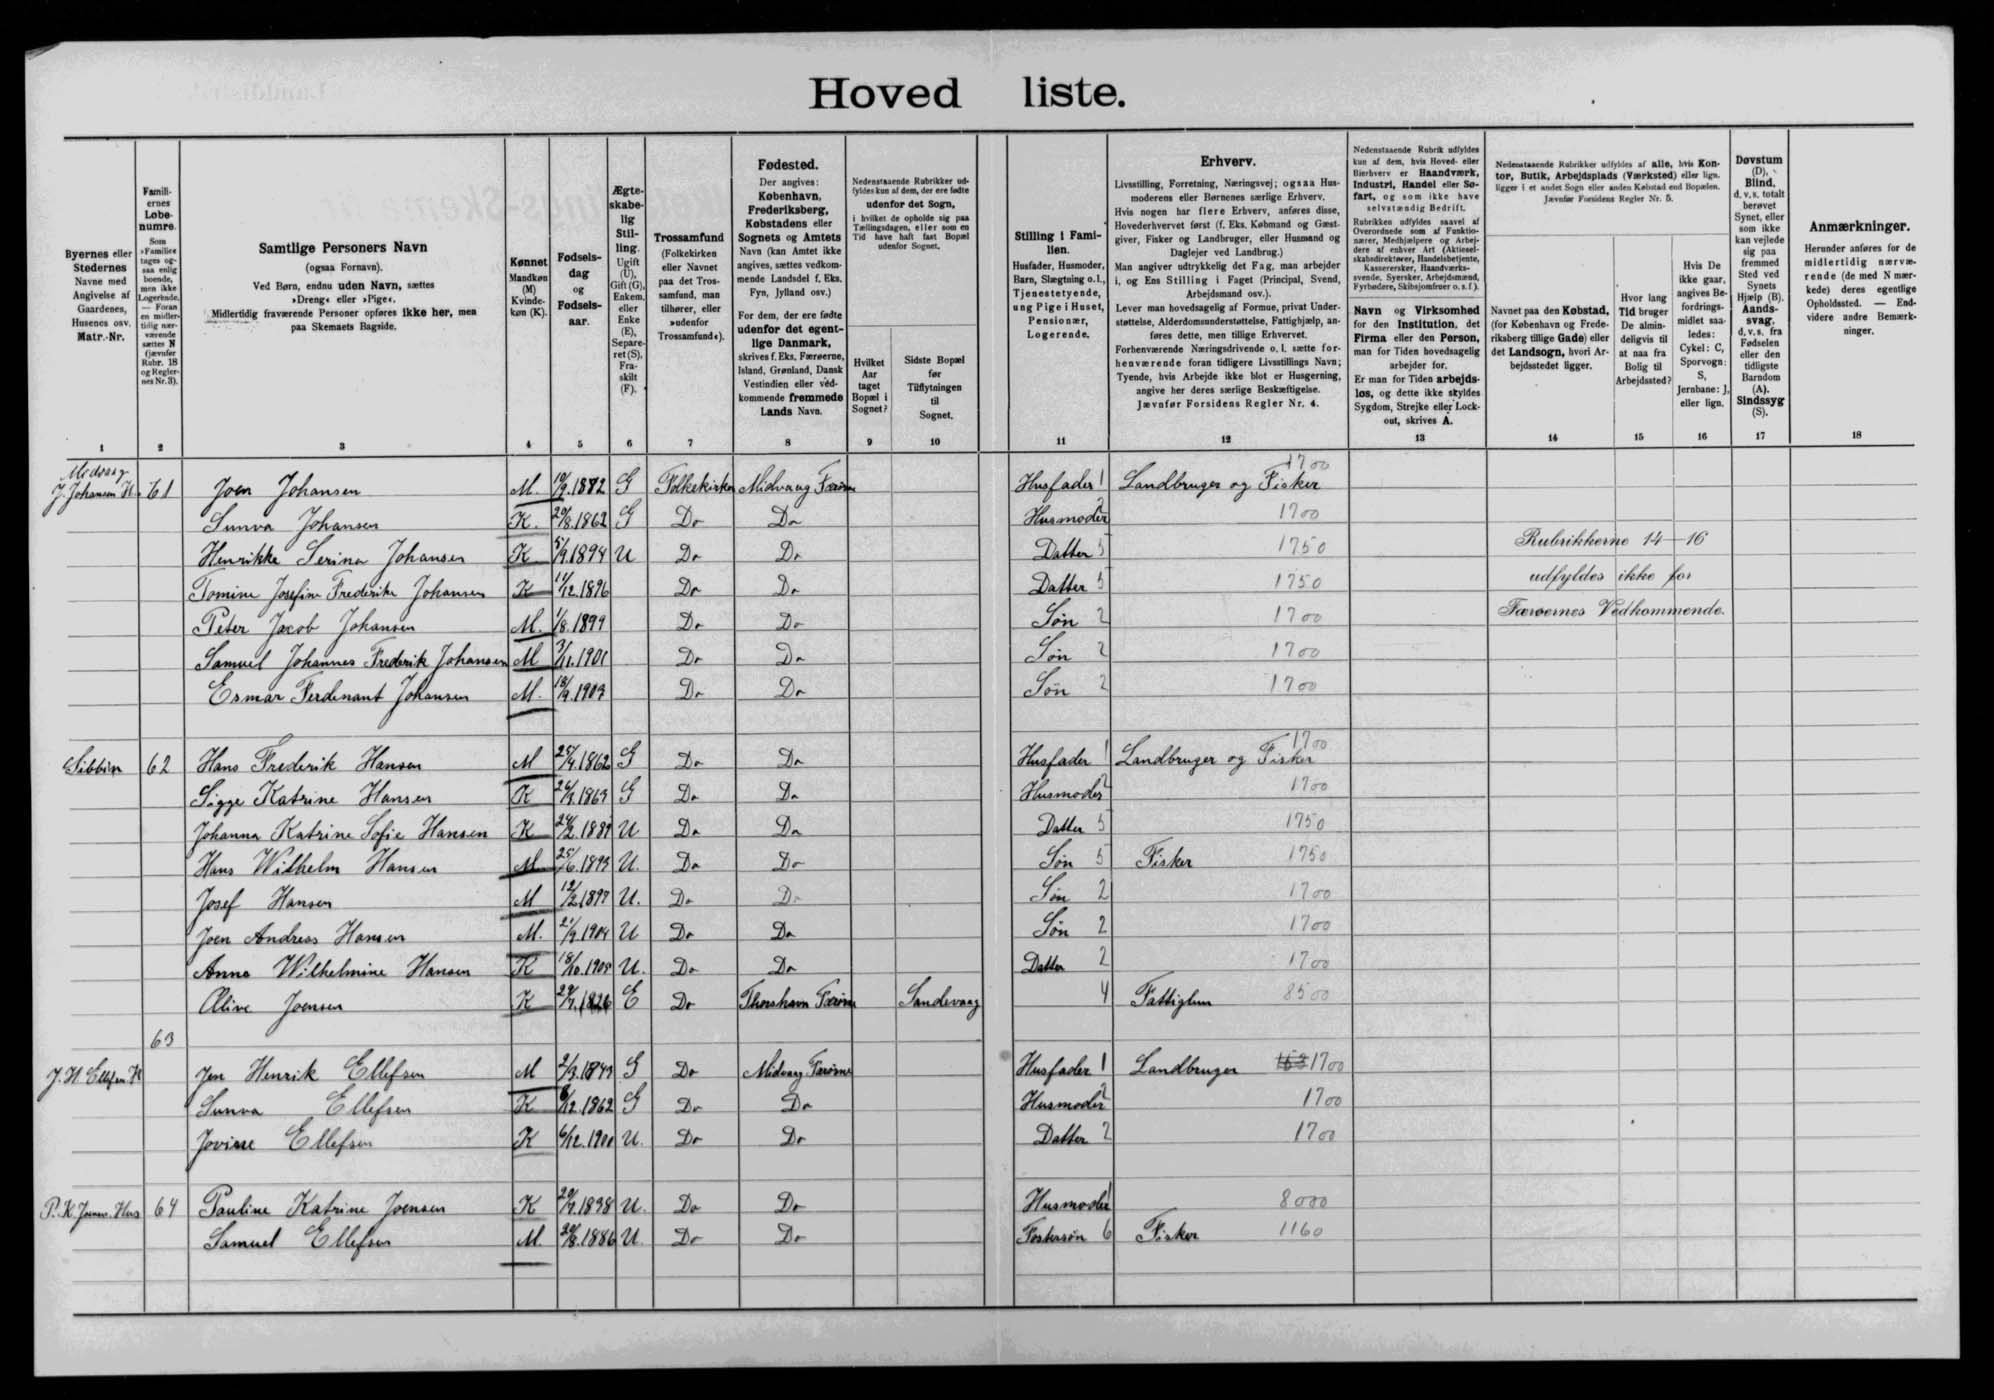 Hoved liste.
Byernes eller Stedernes Navne med Angivelse af Gaardenes, Husenes osv. Matr.-Nr.
Familiernes Løbenumre. Som »Familie« tages ogsaa enlig boende, men ikke Logerende. — Foran en midlertidig nærværende sættes N (jævnfør Rubr. 18 og Reglernes Nr. 3).
Samtlige Personers Navn
(ogsaa Fornavn).
Ved Børn, endnu uden Navn, sættes
»Dreng« eller »Pige«.
Midlertidig fraværende Personer opføres ikke her, men
paa Skemaets Bagside.
Kønnet Mandkøn (M) Kvindekøn (K).
Fødselsdag og Fødselsaar.
Ægteskabelig Stilling. Ugift (U), Gift (G), Enkem. eller Enke (E), Separeret (S), Fraskilt (F).
Trossamfund (Folkekirken eller Navnet paa det Trossamfund, man tilhører, eller »udenfor Trossamfund«).
Fødested.
Der angives: København, Frederiksberg, Købstadens eller Sognets og Amtets Navn (kan Amtet ikke angives, sættes vedkommende Landsdel f. Eks. Fyn, Jylland osv.)
For dem, der ere fødte udenfor det egentlige Danmark, skrives f. Eks. Færøerne, Island, Grønland, Dansk Vestindien eller vedkommende fremmede Lands Navn.
Nedenstaaende Rubrikker udfyldes kun af dem, der ere fødte udenfor det Sogn, i hvilket de opholde sig paa Tællingsdagen, eller som en Tid have haft fast Bopæl udenfor Sognet.
Hvilket Aar taget Bopæl i Sognet?
Sidste Bopæl før Tilflytningen til Sognet.
Stilling i Familien.
Husfader, Husmoder, Barn, Slægtning o. l., Tjenestetyende, ung Pige i Huset, Pensionær, Logerende.
Erhverv.
Livsstilling, Forretning, Næringsvej; ogsaa Husmoderens eller Børnenes særlige Erhverv.
Hvis nogen har flere Erhverv, anføres disse, Hovederhvervet først (f. Eks. Købmand og Gæstgiver, Fisker og Landbruger, eller Husmand og Daglejer ved Landbrug.)
Man angiver udtrykkelig det Fag, man arbejder i, og Ens Stilling i Faget (Principal, Svend, Arbejdsmand osv.).
Lever man hovedsagelig af Formue, privat Understøttelse, Alderdomsunderstøttelse, Fattighjælp, anføres dette, men tillige Erhvervet.
Forhenværende Næringsdrivende o. l. sætte forhenværende foran tidligere Livsstillings Navn; Tyende, hvis Arbejde ikke blot er Husgerning, angive her deres særlige Beskæftigelse.
Jævnfør Forsidens Regler Nr. 4.
Nedenstaaende Rubrik udfyldes kun af dem, hvis Hoved- eller Bierhverv er Haandværk, Industri, Handel eller Søfart, og som ikke have selvstændig Bedrift.
Rubrikken udfyldes saavel af Overordnede som af Funktionærer, Medhjælpere og Arbejdere af enhver Art (Aktieselskabsdirektører, Handelsbetjente, Kasserersker, Haandværkssvende, Syersker, Arbejdsmænd, Fyrbødere, Skibsjomfruer o. s. f.).
Navn og Virksomhed for den Institution, det Firma eller den Person, man for Tiden hovedsagelig arbejder for.
Er man for Tiden arbejdsløs, og dette ikke skyldes Sygdom, Strejke eller Lockout, skrives A.
Nedenstaaende Rubrikker udfyldes af alle, hvis Kontor, Butik, Arbejdsplads (Værksted) eller lign. ligger i et andet Sogn eller anden Købstad end Bopælen. Jævnfør Forsidens Regler Nr. 5.
Navnet paa den Købstad, (for København og Frederiksberg tillige Gade) eller det Landsogn, hvori Arbejdsstedet ligger.
Hvor lang Tid bruger De almindeligvis til at naa fra Bolig til Arbejdssted?
Hvis De ikke gaar, angives Befordringsmidlet saaledes: Cykel: C, Sporvogn: S, Jernbane: J, eller lign.
Døvstum (D), Blind, d. v. s. totalt berøvet Synet, eller som ikke kan vejlede sig paa fremmed Sted ved Synets Hjælp (B). Aandssvag, d. v. s. fra Fødselen eller den tidligste Barndom (A). Sindssyg (S).
Anmærkninger.
Herunder anføres for de midlertidig nærværende (de med N mærkede) deres egentlige Opholdssted. — Endvidere andre Bemærkninger.
1 2 3 4 5 6 7 8 9 10 11 12 13 14 15 16 17 18
J. Johansen H. 61 Joen Johansen M. 10/9.1872 G Folkekirken Midvaag Færøerne Husfader 1 Landbruger og Fisker 1700
Sunva Johansen K. 29/8.1862 G Do Do Husmoder 2 1700
Henrikke Serina Johansen K 5/9.1894 U Do Do Datter 5 1750
Tomine Josefine Frederikke Johansen K 11/12.1896 Do Do Datter 5 1750
Peter Jacob Johansen M. 1/8.1899 Do Do Søn 2 1700
Samuel Johannes Frederik Johansen M 3/11.1901 Do Do Søn 2 1700
Esmar Ferdinant Johansen M. 18/9.1903 Do Do Søn 2 1700
Rubrikkerne 14–16
udfyldes ikke for
Færøernes Vedkommende.
62 Hans Frederik Hansen M 25/4.1862 G Do Do Husfader 1 Landbruger og Fisker 1700
Sigge Katrine Hansen K G Do Do Husmoder 2 1700
Johanna Katrine Sofie Hansen K U Do Do Datter 5 1750
Hans Wilhelm Hansen M 25/6.1893 U. Do Do Søn 5 Fisker 1750
Josef Hansen M 12/2.1897 U. Do Do Søn 2 1700
Joen Andreas Hansen M. 21/9.1904 U Do Do Søn 2 1700
Anna Wilhelmine Hansen K 18/10.1905 U. Do Do Datter 2 1700
Olive Joensen K E Do Thorshavn Færøerne Sandevaag 4 Fattiglem 8500
63
J. H. Ellefsen H Jen Henrik Ellefsen M G Do Midvaag Færøerne Husfader 1 Landbruger 1700
Sunva Ellefsen K 8/12.1862 G Do Do Husmoder 2 1700
Jovine Ellefsen K 6/12.1900 U. Do Do Datter 2 1700
P. K. Joensens Hus 64 Pauline Katrine Joensen K U. Do Do Husmoder 1 8000
Samuel Ellefsen M. 20/8.1886 U. Do Do Fostersøn 6 Fisker 1160